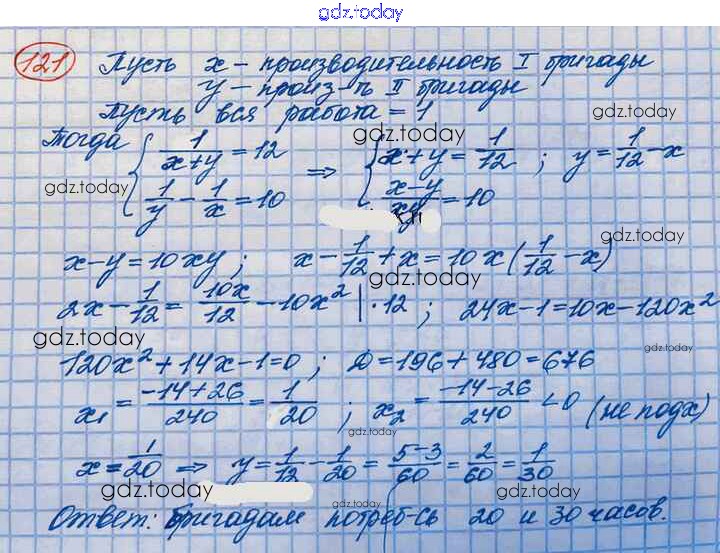 gdz.today
121 Пусть x - производительность I бригады
y - произ-ть II бригады
Пусть вся работа = 1
gdz.today
gdz.today
Тогда { 1/(x+y) = 12 ⇒ { x+y = 1/12 ; y = 1/12 - x
1/y - 1/x = 10 (x-y)/xy = 10
gdz.today
gdz.today
x-y=10xy ; x - 1/12 + x = 10x(1/12 - x)
gdz.today
2x - 1/12 = 10x/12 - 10x² | ·12 ; 24x-1=10x-120x²
gdz.today
gdz.today
120x²+14x-1=0 ; D=196+480=676
x₁ = (-14+26)/240 = 1/20 ; x₂ = (-14-26)/240 < 0 (не подх)
gdz.today
x = 1/20 ⇒ y = 1/12 - 1/20 = (5-3)/60 = 2/60 = 1/30
gdz.today
gdz.today
gdz.today
Ответ: бригадам потреб-сь 20 и 30 часов.
gdz.today